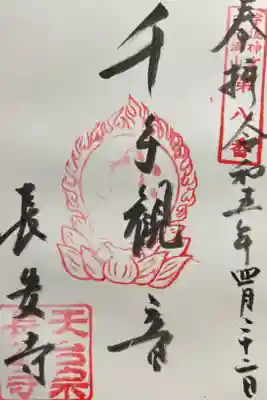 奉拝 令和五年四月二十二日
第八番
千手観音
長安寺
天台宗
長安寺